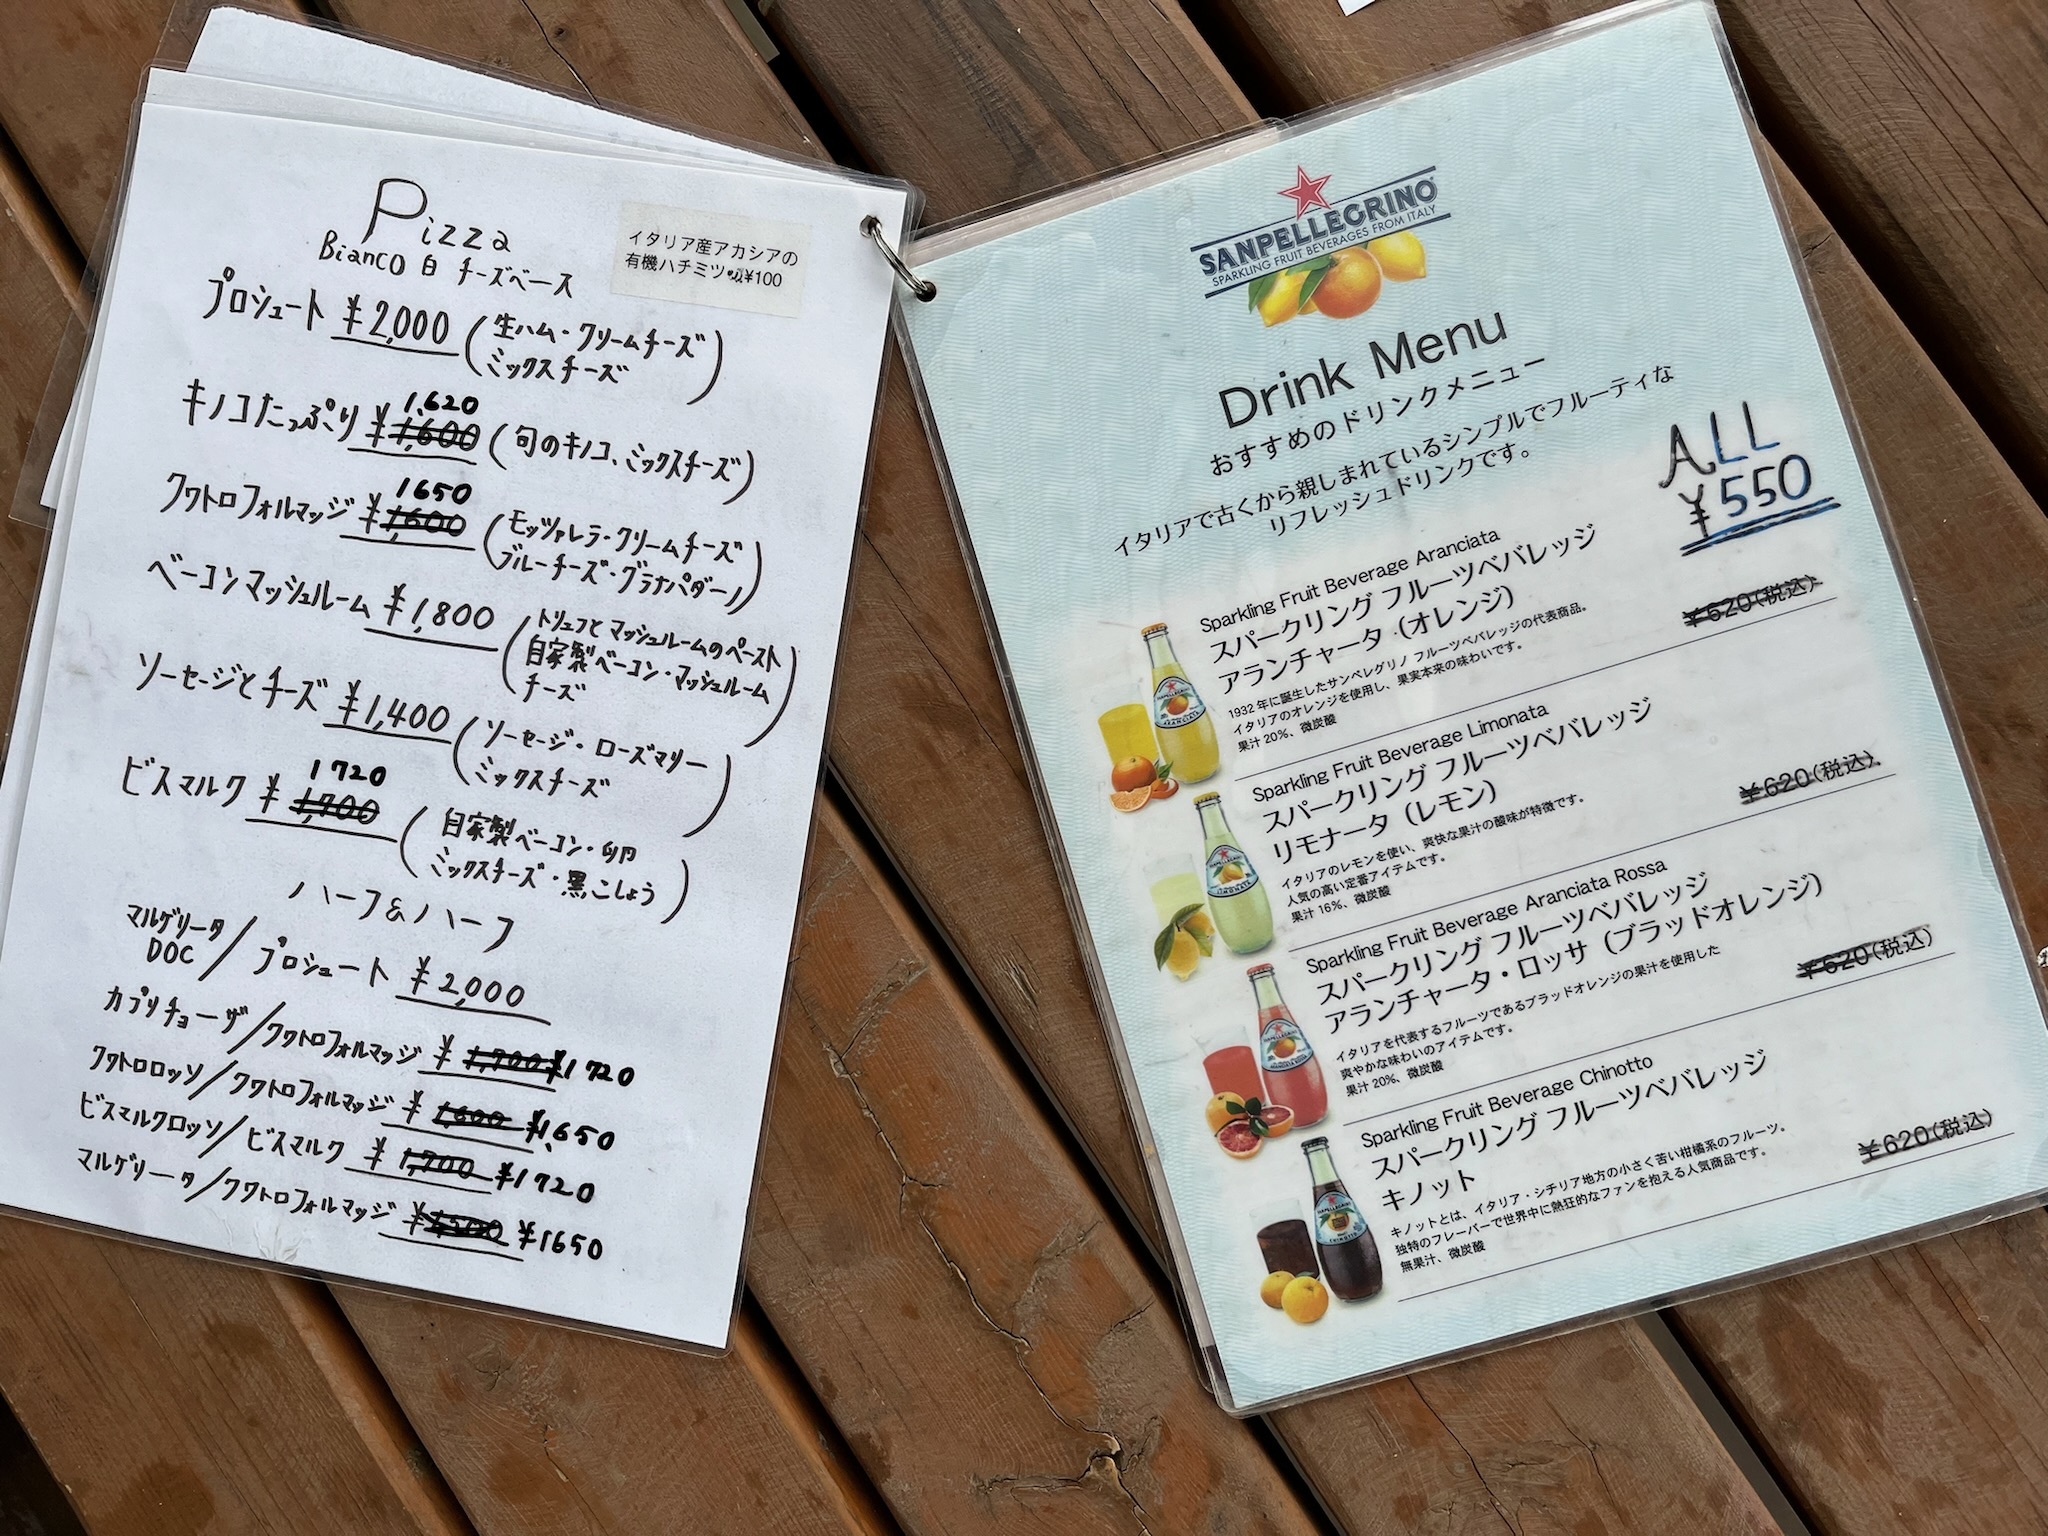 Pizza
Bianco 白 チーズベース
イタリア産アカシアの
有機ハチミツ ¥100
プロシュート ¥2,000 (生ハム・クリームチーズ
ミックスチーズ)
キノコたっぷり ¥1,600 1,620 (旬のキノコ、ミックスチーズ)
クワトロフォルマッジ ¥1,600 1650 (モッツァレラ・クリームチーズ
ブルーチーズ・グラナパダーノ)
ベーコンマッシュルーム ¥1,800 (トリュフとマッシュルームのペースト
自家製ベーコン・マッシュルーム
チーズ)
ソーセージとチーズ ¥1,400 (ソーセージ・ローズマリー
ミックスチーズ)
ビスマルク ¥1,700 1720 (自家製ベーコン・卵
ミックスチーズ・黒こしょう)
ハーフ&ハーフ
マルゲリータ
DOC / プロシュート ¥2,000
カプリチョーザ/クワトロフォルマッジ ¥1,700 ¥1720
クワトロロッソ/クワトロフォルマッジ ¥1,600 ¥1,650
ビスマルクロッソ/ビスマルク ¥1,700 ¥1720
マルゲリータ/クワトロフォルマッジ ¥1650
SANPELLEGRINO
SPARKLING FRUIT BEVERAGES FROM ITALY
Drink Menu
おすすめのドリンクメニュー
イタリアで古くから親しまれているシンプルでフルーティな
リフレッシュドリンクです。
ALL
¥550
Sparkling Fruit Beverage Aranciata
スパークリング フルーツベバレッジ
アランチャータ (オレンジ)
¥620(税込)
1932年に誕生したサンペレグリノ フルーツベバレッジの代表商品。
イタリアのオレンジを使用し、果実本来の味わいです。
果汁20%、微炭酸
Sparkling Fruit Beverage Limonata
スパークリング フルーツベバレッジ
リモナータ (レモン)
¥620(税込)
イタリアのレモンを使い、爽快な果汁の酸味が特徴です。
人気の高い定番アイテムです。
果汁16%、微炭酸
Sparkling Fruit Beverage Aranciata Rossa
スパークリング フルーツベバレッジ
アランチャータ・ロッサ (ブラッドオレンジ)
¥620(税込)
イタリアを代表するフルーツであるブラッドオレンジの果汁を使用した
爽やかな味わいのアイテムです。
果汁20%、微炭酸
Sparkling Fruit Beverage Chinotto
スパークリング フルーツベバレッジ
キノット
¥620(税込)
キノットとは、イタリア・シチリア地方の小さく苦い柑橘系のフルーツ。
独特のフレーバーで世界中に熱狂的なファンを抱える人気商品です。
無果汁、微炭酸